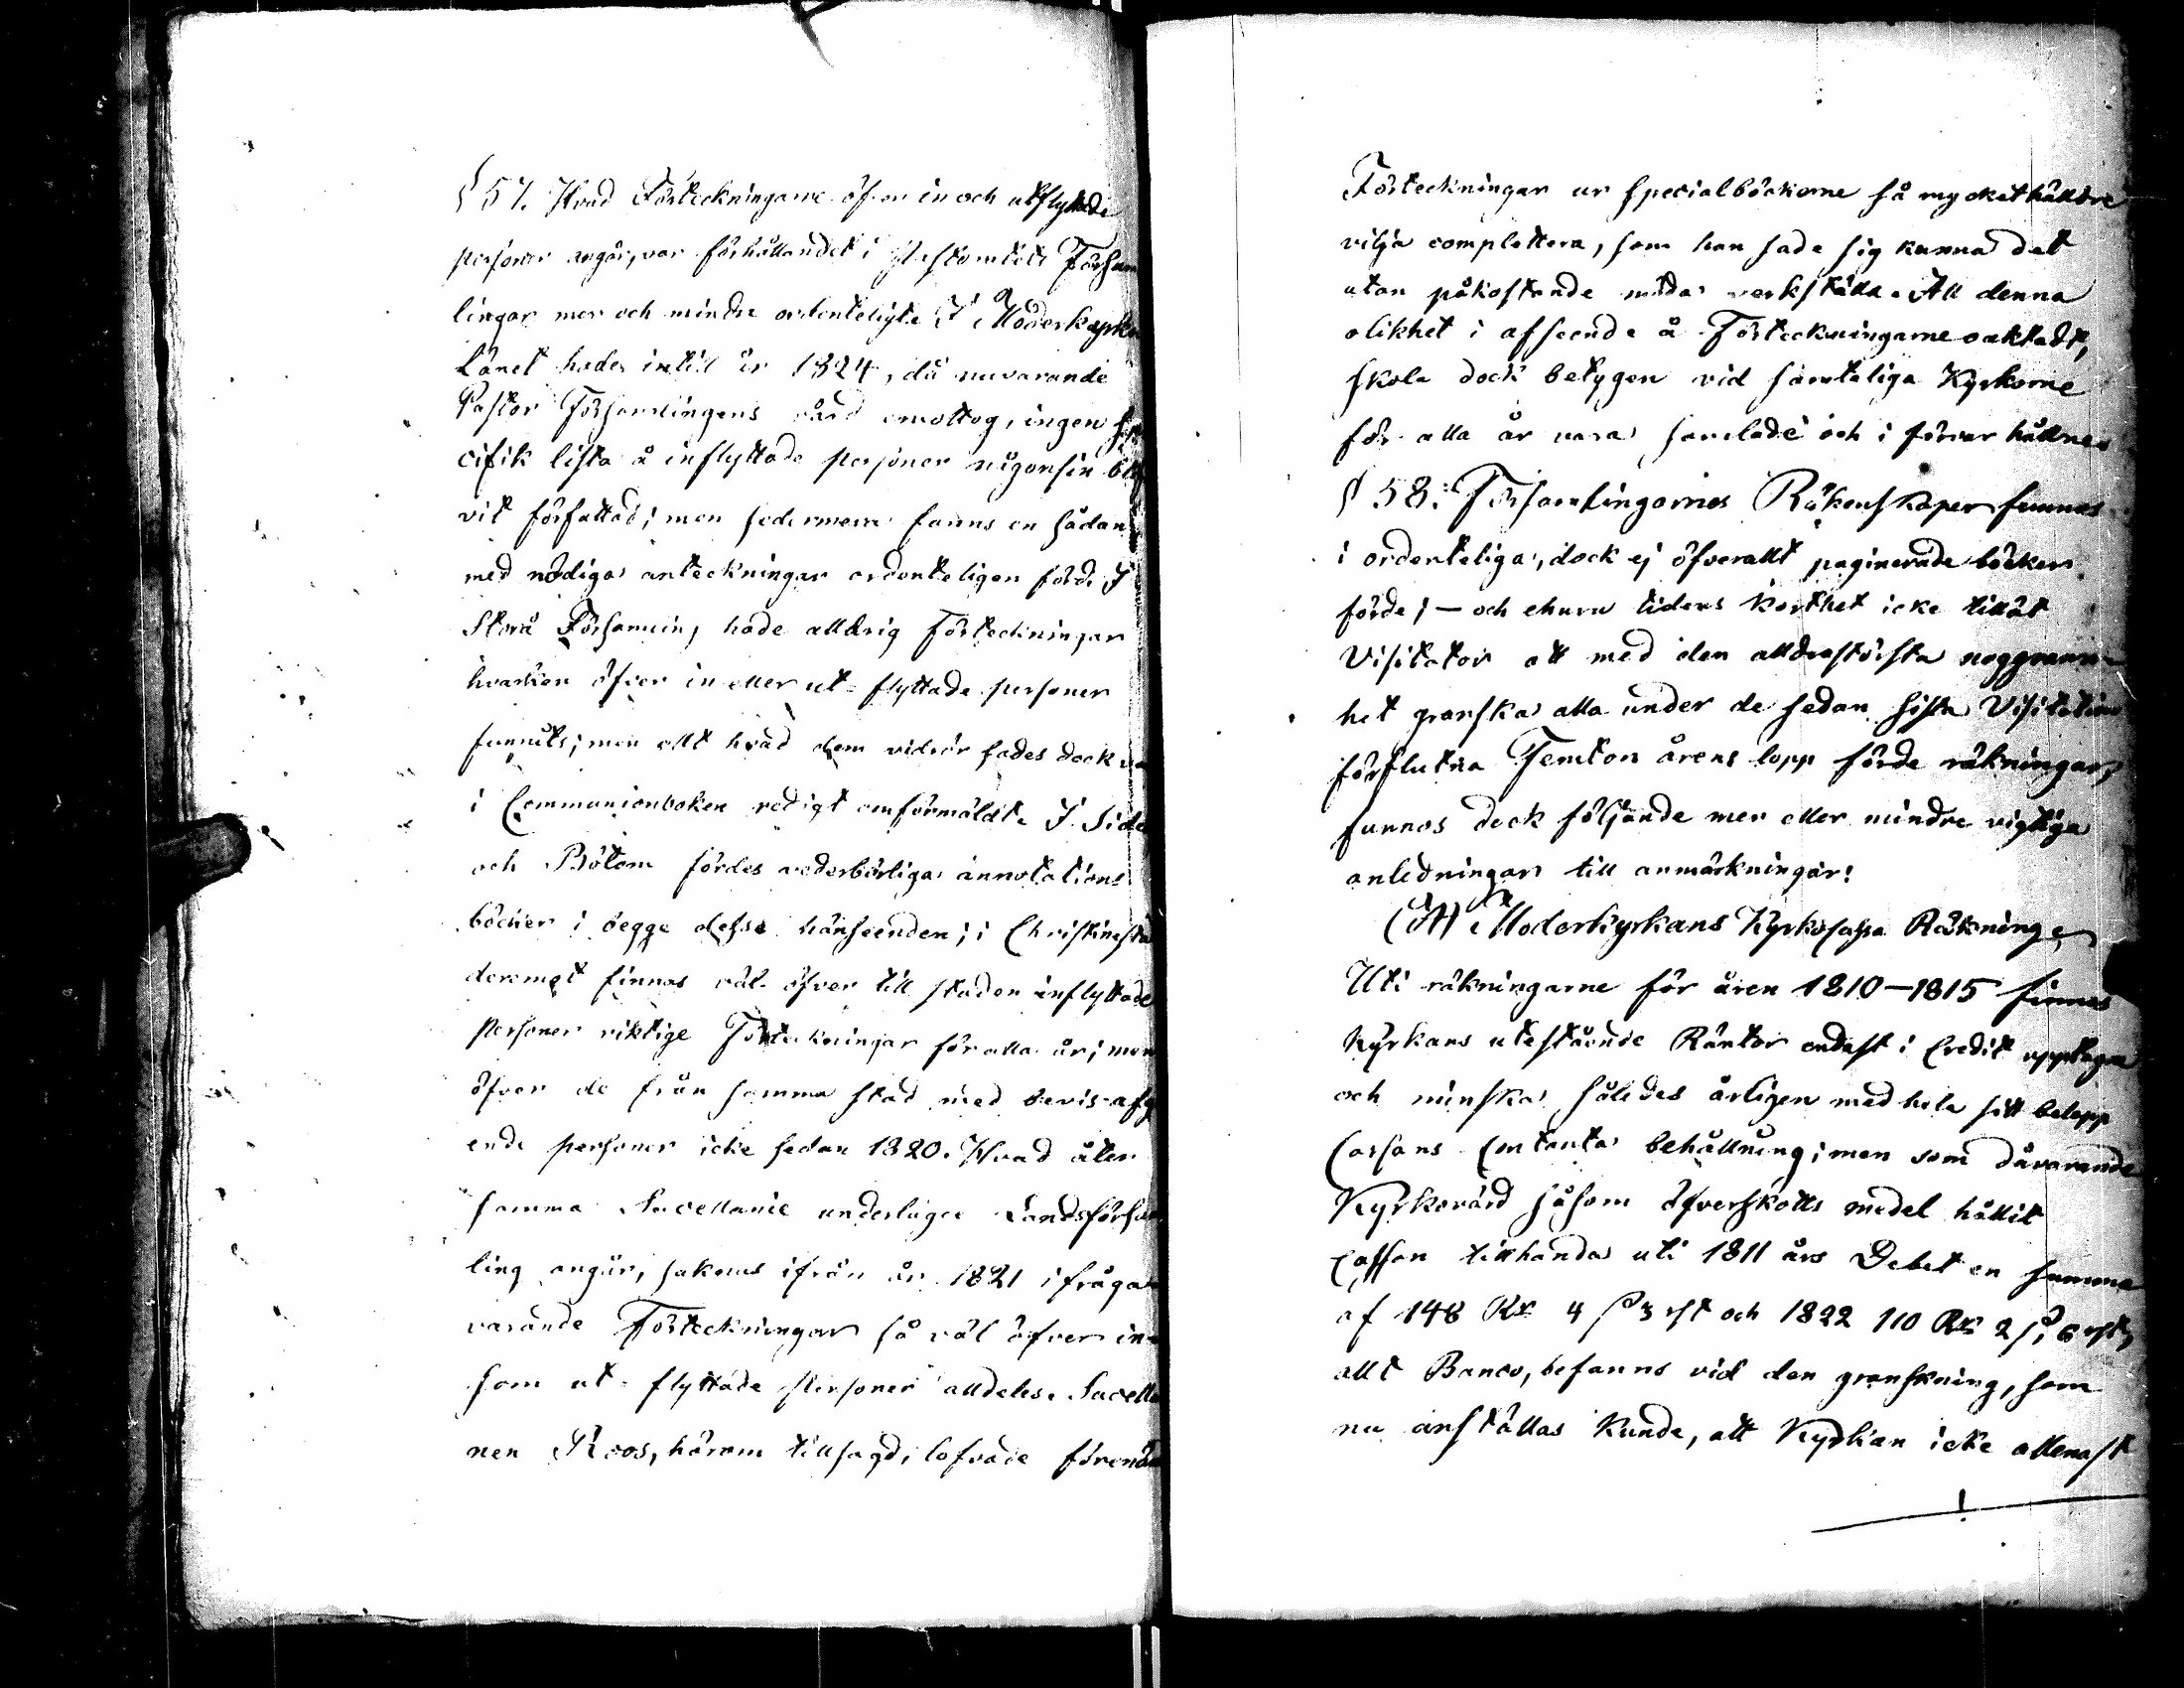 § 57. Hvad Förteckningarne öfver in och utflyttade
personer angår, var förhållandet i Pastoratets Försam
lingar mer och mindre ordenteligt. I Moderkyrko
Länet hade intill år 1824, då nuvarande
Pastor Församlingens vård emottog, ingen spe
cifik lista å inflyttade personer någonsin bli
vit författad; men sedermera fanns en sådan
med nödiga anteckningar ordenteligen förd. I
Storå Församling hade alldrig Förteckningar
hvarken öfver in eller ut-flyttade personer
funnits; men allt hvad dem vidrör sades dock va
i Communionboken redigt omförmäldt. I Side
och Bötom fördes vederbörliga annotations
böcker i begge dessa hänseenden; i Christinesta
deremot finnas väl öfver till staden inflyttade
personer riktige Förteckningar för alla år; men
öfver de från samma stad med bevis afg
ende personer icke sedan 1820. Hvad åter
samma Sacellanie underlagde Landsförsam
ling angår, saknas ifrån år 1821 ifråga
varande Förteckningar så väl öfver in-
som ut-flyttade personer alldeles. Sacella
nen Roos, härom tillsagd, lofvade förenäm
Förteckningar ur specialböckerne så mycket hälldre
vilja complettera, som han sade sig kunna det
utan påkostande möda verkställa. All denna
olikhet i afseende å Förteckningarne oaktadt,
skola dock betygen vid samteliga Kyrkorne
för alla år vara samlade och i förvar hållne.
§ 58. Församlingarnes Räkenskaper funnos
i ordenteliga, dock ej öfverallt paginerade böcker
förde; — och ehuru tidens korthet icke tillät
Visitator att med den alldrastörsta noggrann-
het granska alla under de sedan sista Visitation
förflutna Femton årens lopp förde räkningar,
funnos dock följande mer eller mindre vigtiga
anledningar till anmärkningar:
(A) Moderkyrkans Kyrkocassa Räkning.
Uti räkningarne för åren 1810—1815 finnas
Kyrkans utestående Räntor endast i Credit upptagne
och minska således årligen med hela sitt belopp
Cassans Contanta behållning; men som dåvarande
Kyrkovärd såsom öfverskotts medel hållit
Cassan tillhanda uti 1811 års Debet en summa
af 148 Rr 4 ß 3 rst och 1822 110 Rr 2 ß, 6 rst,
allt Banco, befanns vid den granskning, som
nu anställas kunde, att Kyrkan icke allenast